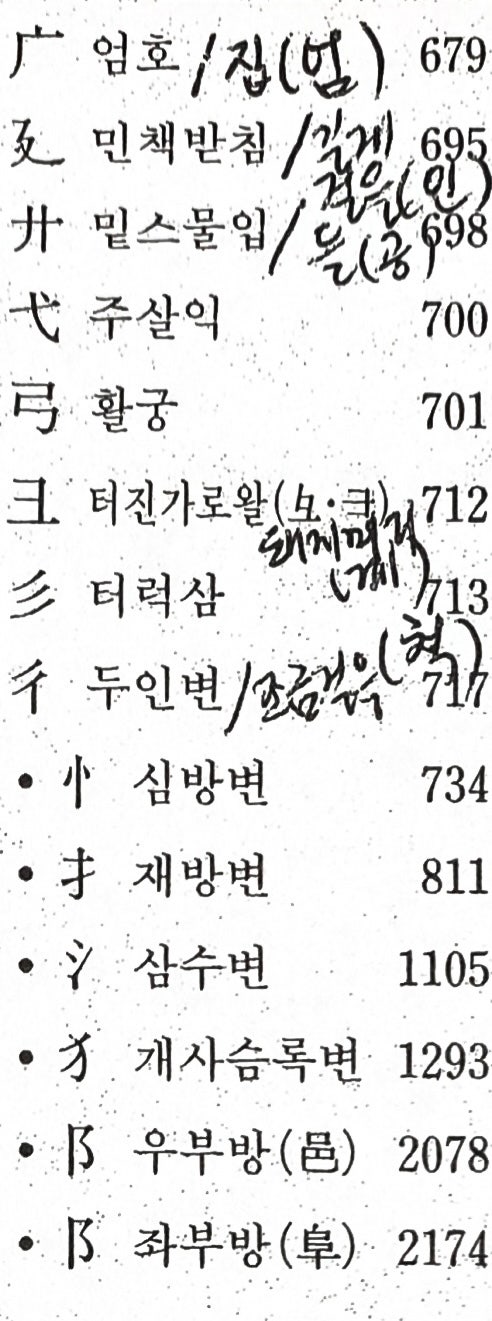 广 엄호 /집(엄) 679
廴 민책받침 /길게걸을(인) 695
廾 밑스물입 /들(공) 698
弋 주살익 700
弓 활궁 701
彐 터진가로왈(彑·⺕) 712
돼지머리(계)
彡 터럭삼 713
彳 두인변 /조금걸을(척) 717
• 忄 심방변 734
• 扌 재방변 811
• 氵 삼수변 1105
• 犭 개사슴록변 1293
• 阝 우부방(邑) 2078
• 阝 좌부방(阜) 2174